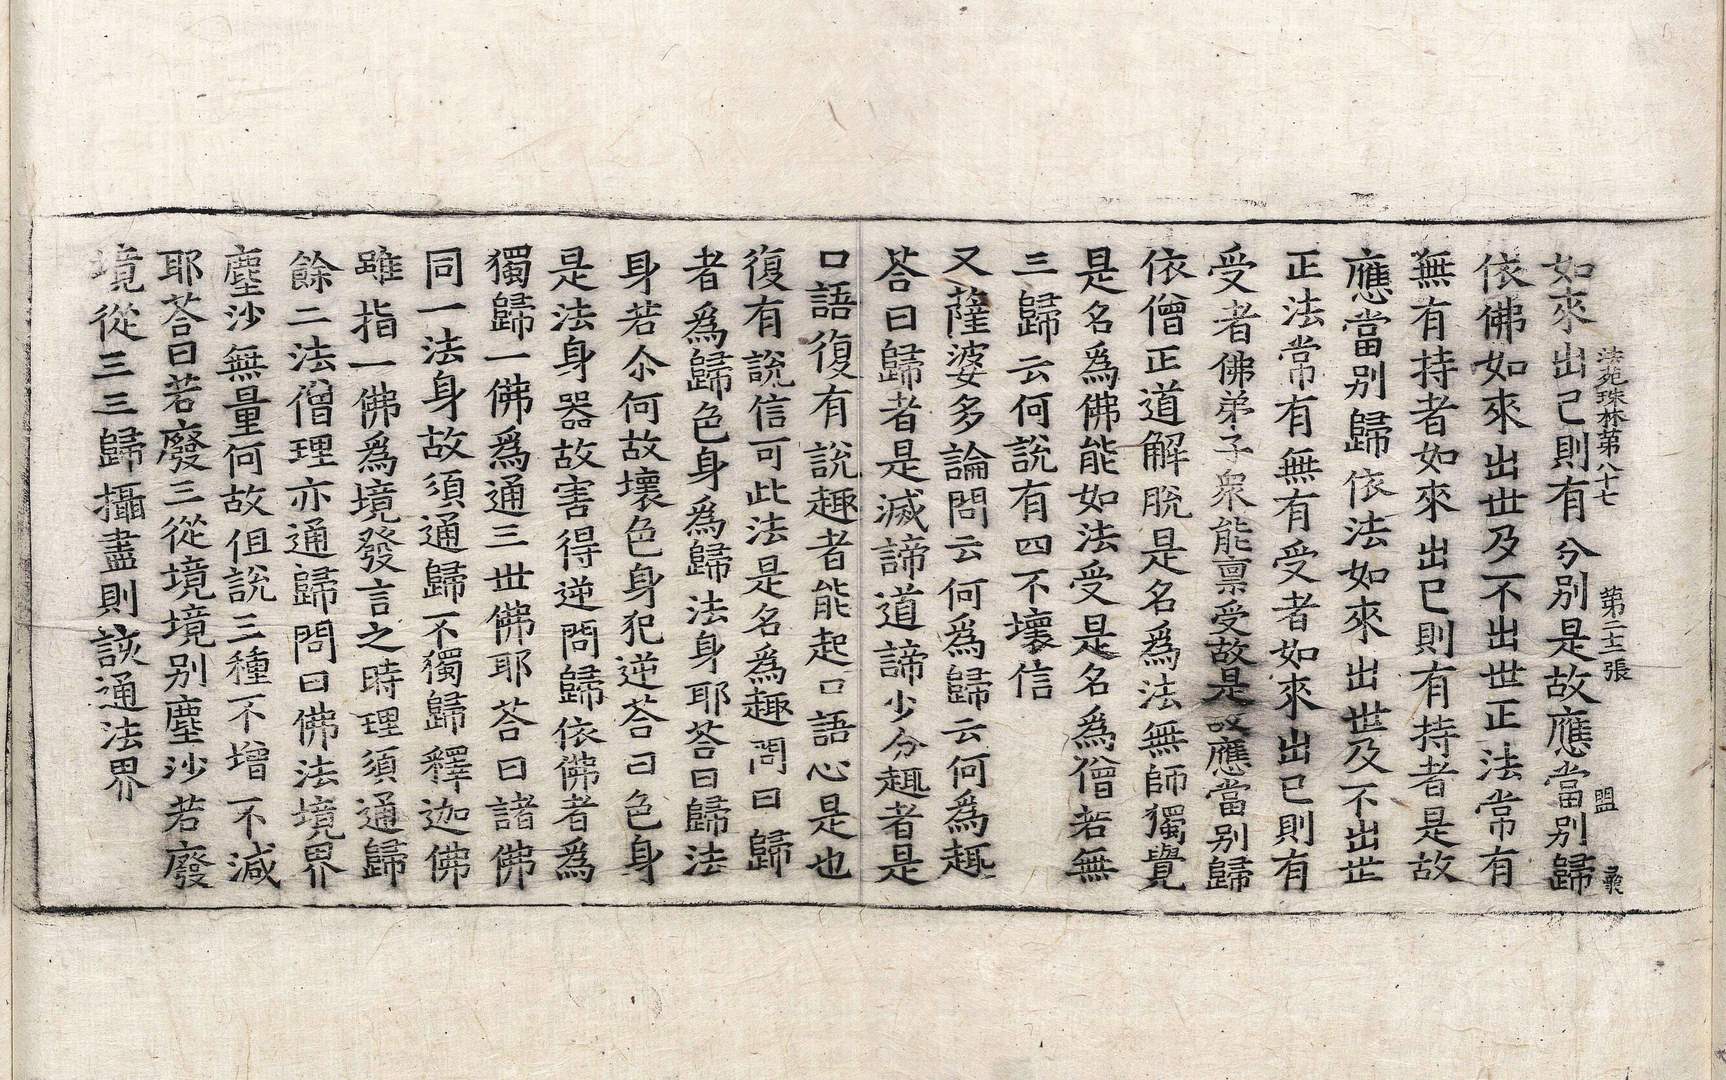 法苑珠林第八十七 第二十三張 盟
如來出已則有分別是故應當別歸
依佛如來出世及不出世正法常有
無有持者如來出已則有持者是故
應當別歸依法如來出世及不出世
正法常有無有受者如來出已則有
受者佛弟子衆能禀受故是故應當別歸
依僧正道解脫是名為法無師獨覺
是名爲佛能如法受是名爲僧若無
三歸云何說有四不壞信
又薩婆多論問云何爲歸云何爲趣
荅曰歸者是滅諦道諦少分趣者是
口語復有說趣者能起口語心是也
復有說信可此法是名爲趣問曰歸
者爲歸色身爲歸法身耶荅曰歸法
身若尒何故壞色身犯逆荅曰色身
是法身器故害得逆問歸依佛者爲
獨歸一佛爲通三世佛耶荅曰諸佛
同一法身故須通歸不獨歸釋迦佛
雖指一佛爲境發言之時理須通歸
餘二法僧理亦通歸問曰佛法境界
塵沙無量何故但說三種不增不減
耶荅曰若廢三從境境別塵沙若廢
境從三三歸攝盡則該通法界